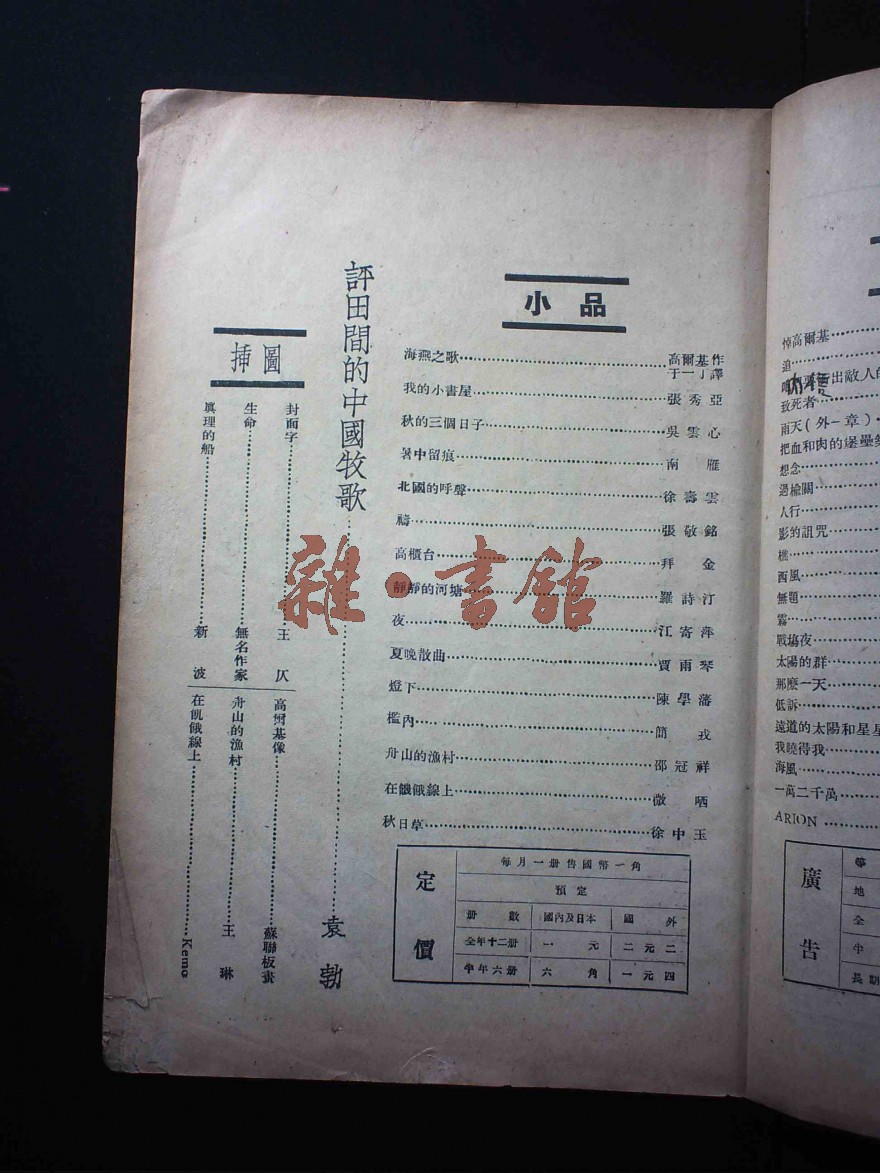 小品
海燕之歌 高爾基作 于一丁譯
我的小書屋 張秀亞
秋的三個日子 吳雲心
暑中留痕 南雁
北國的呼聲 徐壽雲
禱 張敬銘
高櫃台 拜金
靜靜的河塘 羅詩汀
夜 江寄萍
夏晚散曲 賈雨琴
燈下 陳學藩
檻內 簡戎
舟山的漁村 邵冠祥
在餓餓線上 微哂
秋日草 徐中玉
評田間的中國牧歌 袁勃
插圖
封面字 王仄
生命 無名作家
眞理的船 新波
高爾基像 蘇聯板畫
舟山的漁村 王琳
在飢餓線上 Kemo
定價
每月一册售國幣一角
預定
册數 國內及日本 國外
全年十二册 一元 二元二
半年六册 六角 一元四
悼高爾基
追
出敵人的
致死者
雨天(外一章)
把血和肉的堡壘
想念
過榆關
人行
影的詛咒
樵
西風
無題
霧
戰塲夜
太陽的群
那麽一天
低訴
遠道的太陽和星星
我曉得我
海風
一萬二千萬
ARION
廣告
等
地
全
半
長期
雜·書館